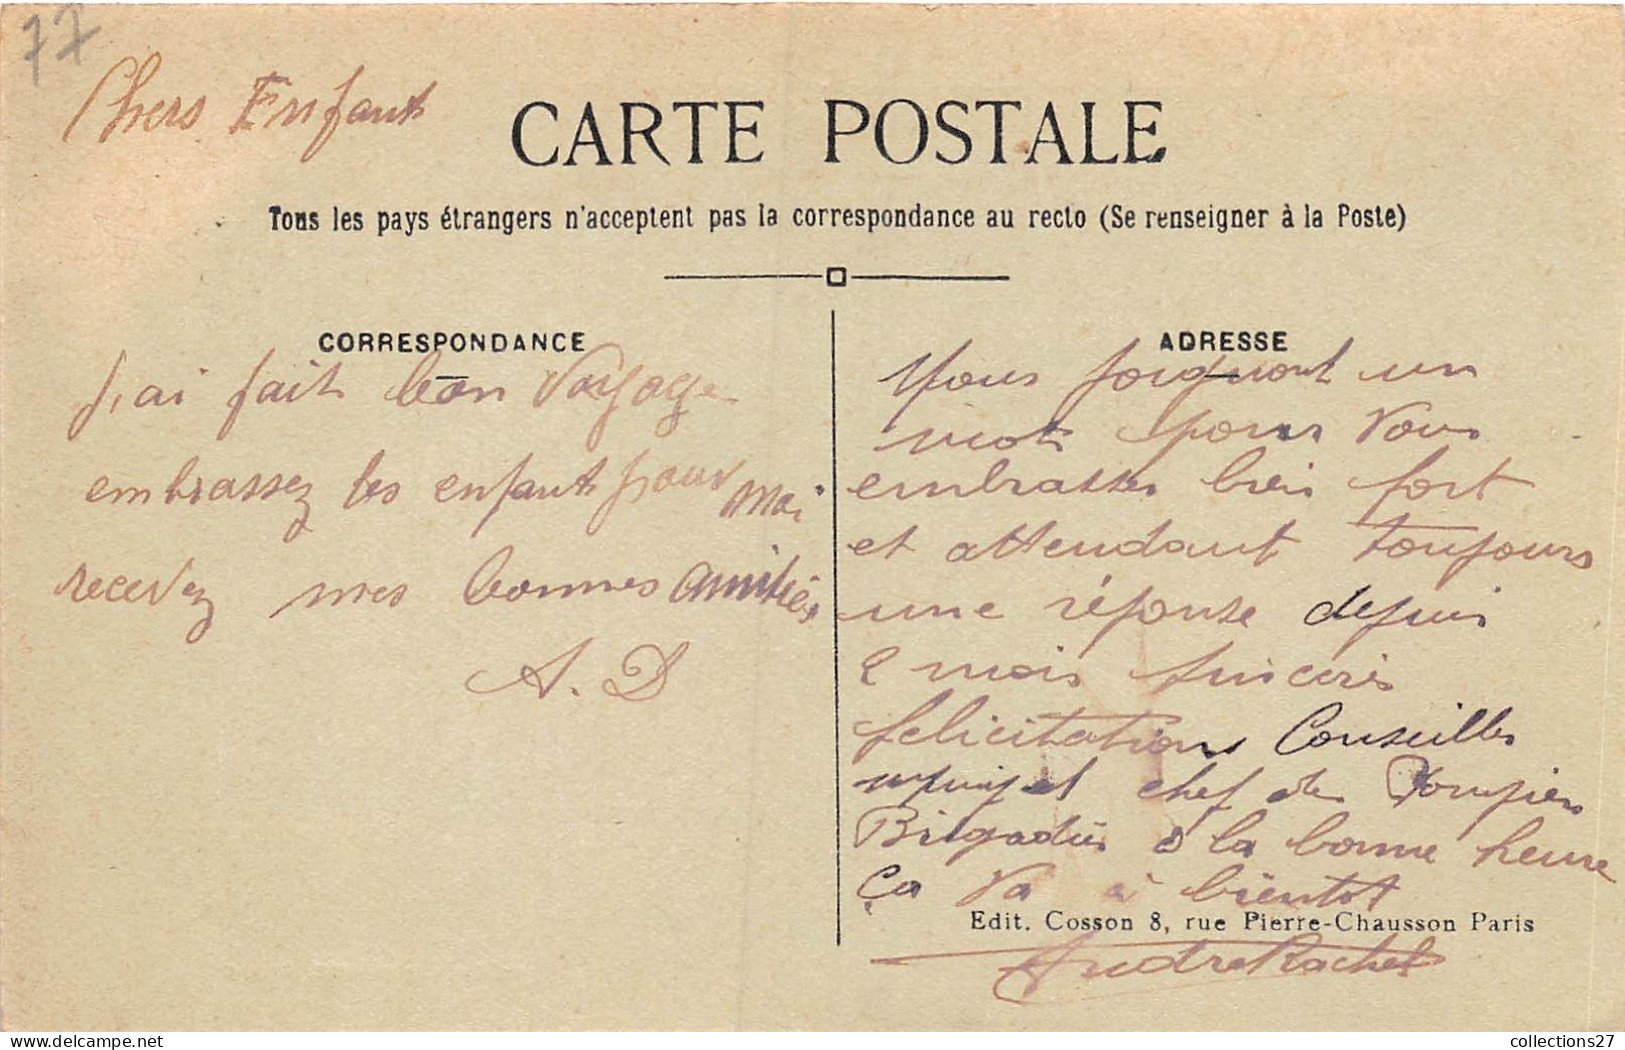 77
Chers Enfants
CARTE POSTALE
Tous les pays étrangers n'acceptent pas la correspondance au recto (Se renseigner à la Poste)
CORRESPONDANCE
J,ai fait bon Voyage
embrassez les enfants pour moi
recevez mes bonnes amitiés
A. D
ADRESSE
Nous joignont un
mot pour Vous
embrasser bien fort
et attendant toujours
une réponse depuis
2 mois sincères
felicitations Conseiller
chef des Pompiers
Brigadier à la bonne heure
Ça Va à bientôt
Edit. Cosson 8, rue Pierre-Chausson Paris
Andre Rachel
collections27